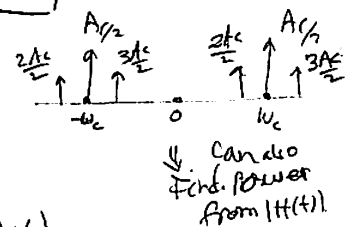 Ac/2 Ac/2
2Ac/2 3Ac/2 2Ac/2 3Ac/2
-ωc 0 ωc
⇓ Can also
Find Power
from |H(f)|